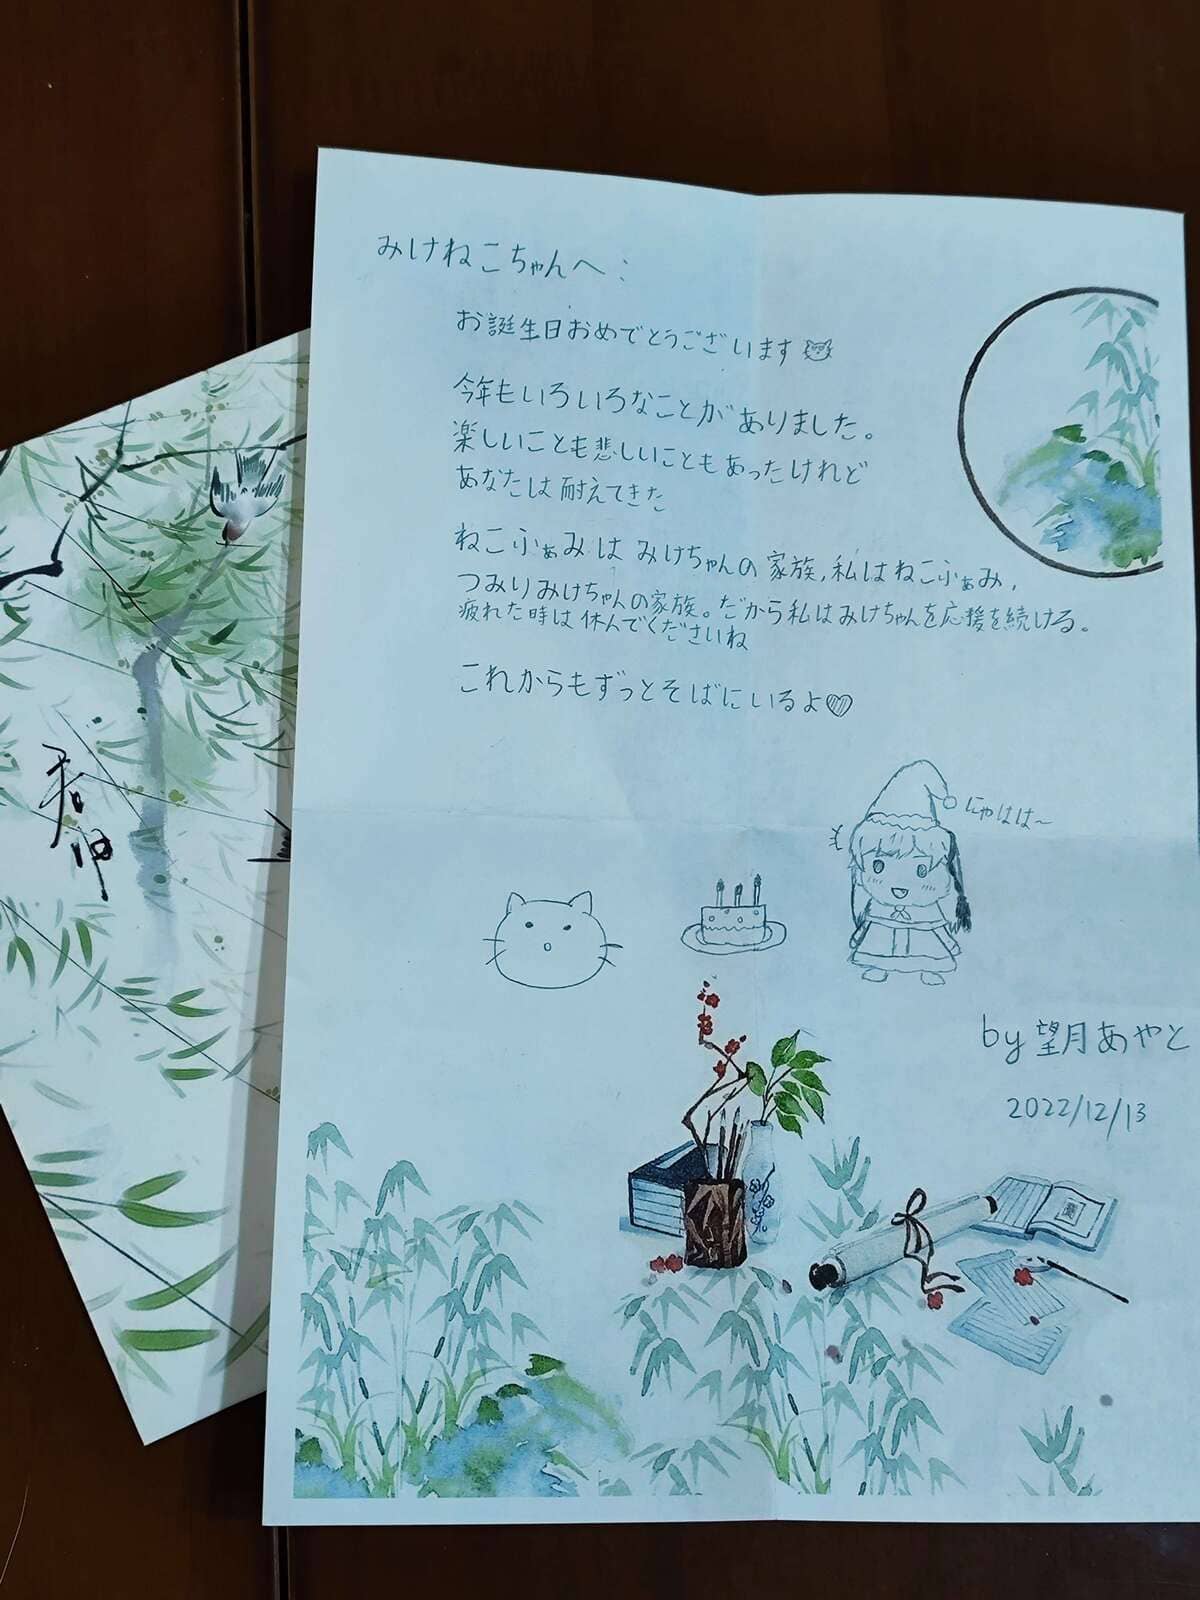 みけねこちゃんへ:
お誕生日おめでとうございます
今年もいろいろなことがありました。
楽しいことも悲しいこともあったけれど
あなたは耐えてきた
ねこふぁみはみけちゃんの家族,私はねこふぁみ,
つみりみけちゃんの家族。だから私はみけちゃんを応援を続ける。
疲れた時は休んでくださいね
これからもずっとそばにいるよ♡
にゃはは~
by 望月あやと
2022/12/13